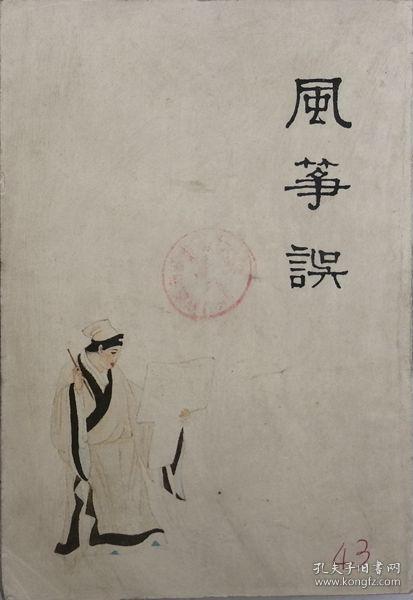 風箏誤
43
孔夫子旧书网
www.kongfz.com